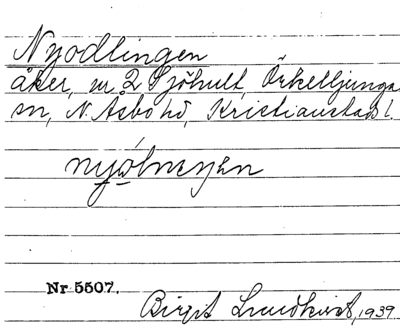 Nyodlingen
åker, nr 2 Sjöhult, Örkelljunga
sn, N. Åsbo hd, Kristianstads l.
Nr 5507.
Birgit Lundkvist, 1939